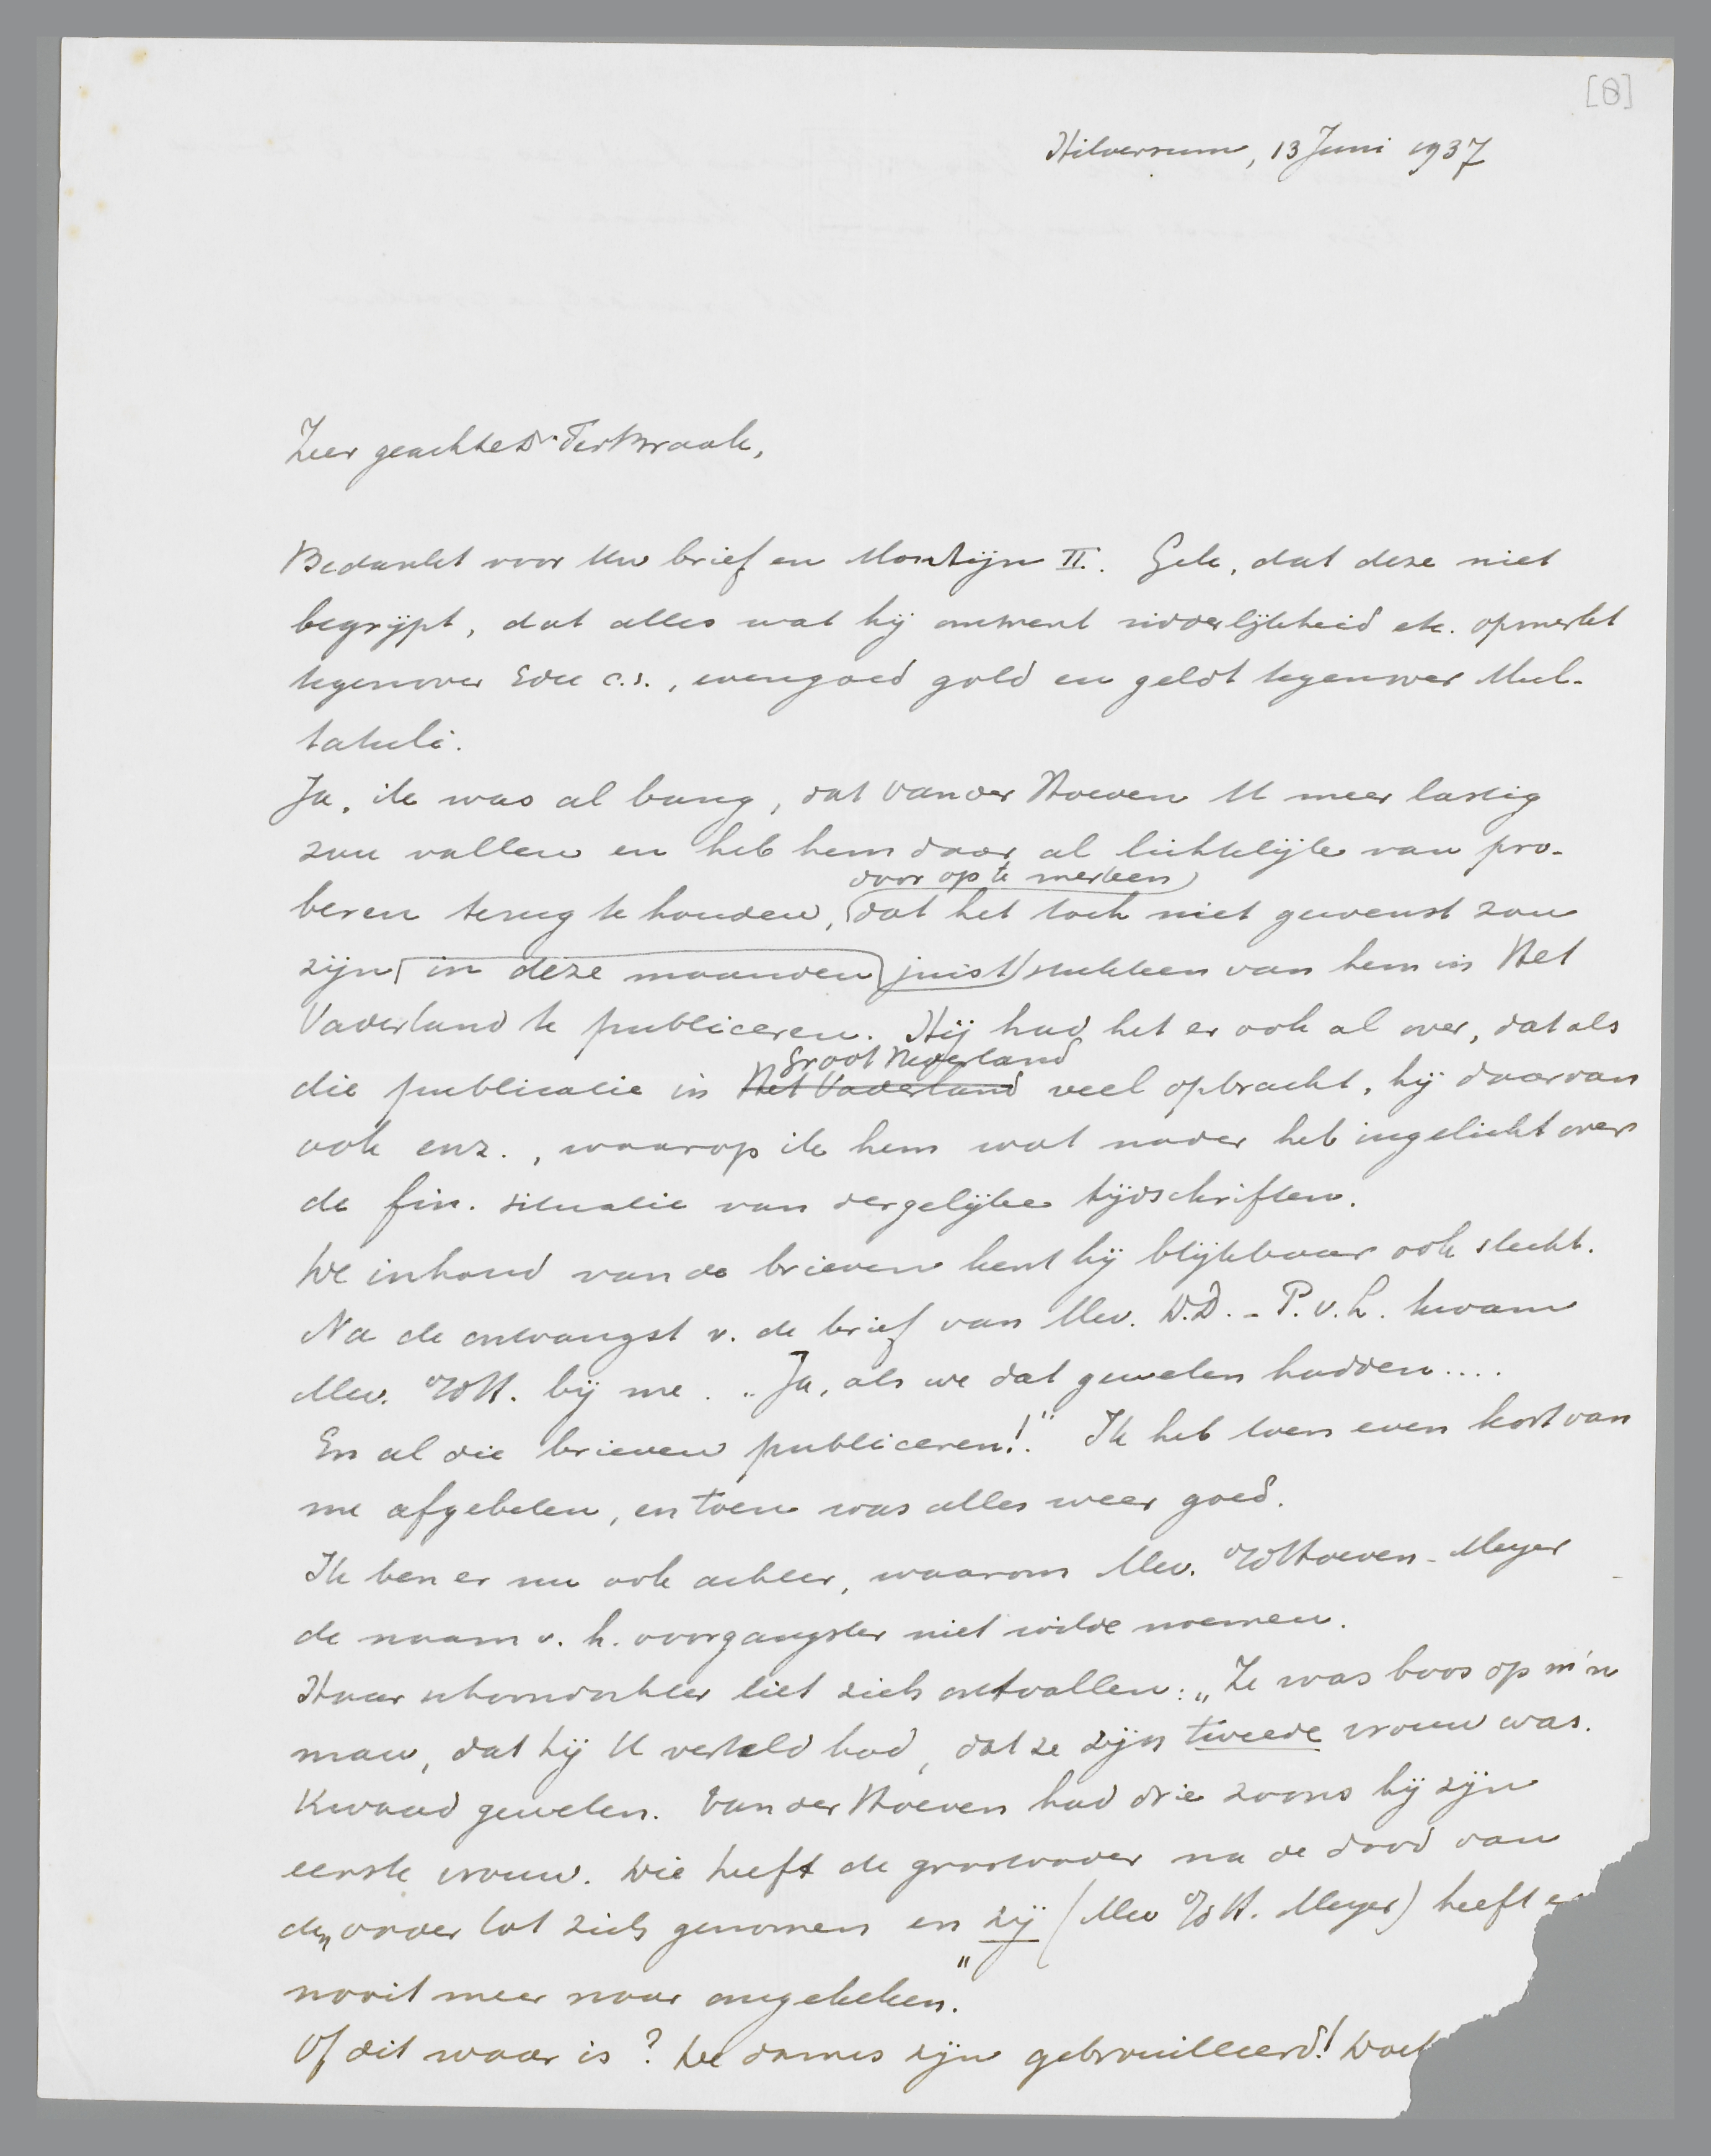 [8]
Hilversum, 13 Juni 1937
Zeer geachte Dr. Ter Braak,
Bedankt voor Uw brief en Montijn II. Gek, dat deze niet
begrijpt, dat alles wat hij omtrent ridderlijkheid etc. opmerkt
tegenover Edu c.s., evengoed gold en geldt tegenover Mul-
tatuli.
Ja, ik was al bang, dat Van der Hoeven U meer lastig
zou vallen en heb hem daar al lichtelijk van pro-
door op te merken
beren terug te houden, dat het toch niet gewenst zou
zijn in deze maanden juist stukken van hem in Het
Vaderland te publiceren. Hij had het er ook al over, dat als
Groot Nederland
die publicatie in Het Vaderland veel opbracht, hij daarvan
ook enz., waarop ik hem wat nader heb ingelicht over
de fin. situatie van dergelijke tijdschriften.
De inhoud van de brieven kent hij blijkbaar ook slecht.
Na de ontvangst v. de brief van Mev. D.D. - P.v.L. kwam
Mev. v/d H. bij me. „Ja, als we dat geweten hadden....
En al die brieven publiceren!." Ik heb toen even kort van
me afgebeten, en toen was alles weer goed.
Ik ben er nu ook achter, waarom Mev. v/d Hoeven-Meyer
de naam v. h. voorgangster niet wilde noemen.
Haar schoondochter liet zich ontvallen: „Ze was boos op m'n
man, dat hij U verteld had, dat ze zijn tweede vrouw was.
Kwaad geweten. Van der Hoeven had drie zoons bij zijn
eerste vrouw. Die heeft de grootvader na de dood van
den vader tot zich genomen en zij (Mev v/d H. Meyer) heeft
nooit meer naar omgekeken."
Of dit waar is? De dames zijn gebrouilleerd!